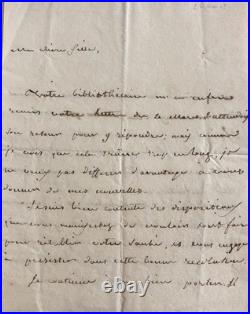 Ma chère fille,
Votre bibliothécaire m'a enfin
remis votre lettre de la Mare. J'attendais
son retour pour y répondre, mais comme
je vois que cela traîne trop en long, je
ne veux pas différer davantage à vous
donner de mes nouvelles.
Je suis bien contente des dispositions
que vous manifestez de vouloir tout faire
pour rétablir votre santé, et vous engage
à persister dans cette bonne résolution.
Je continue bien porter
© dbay.site